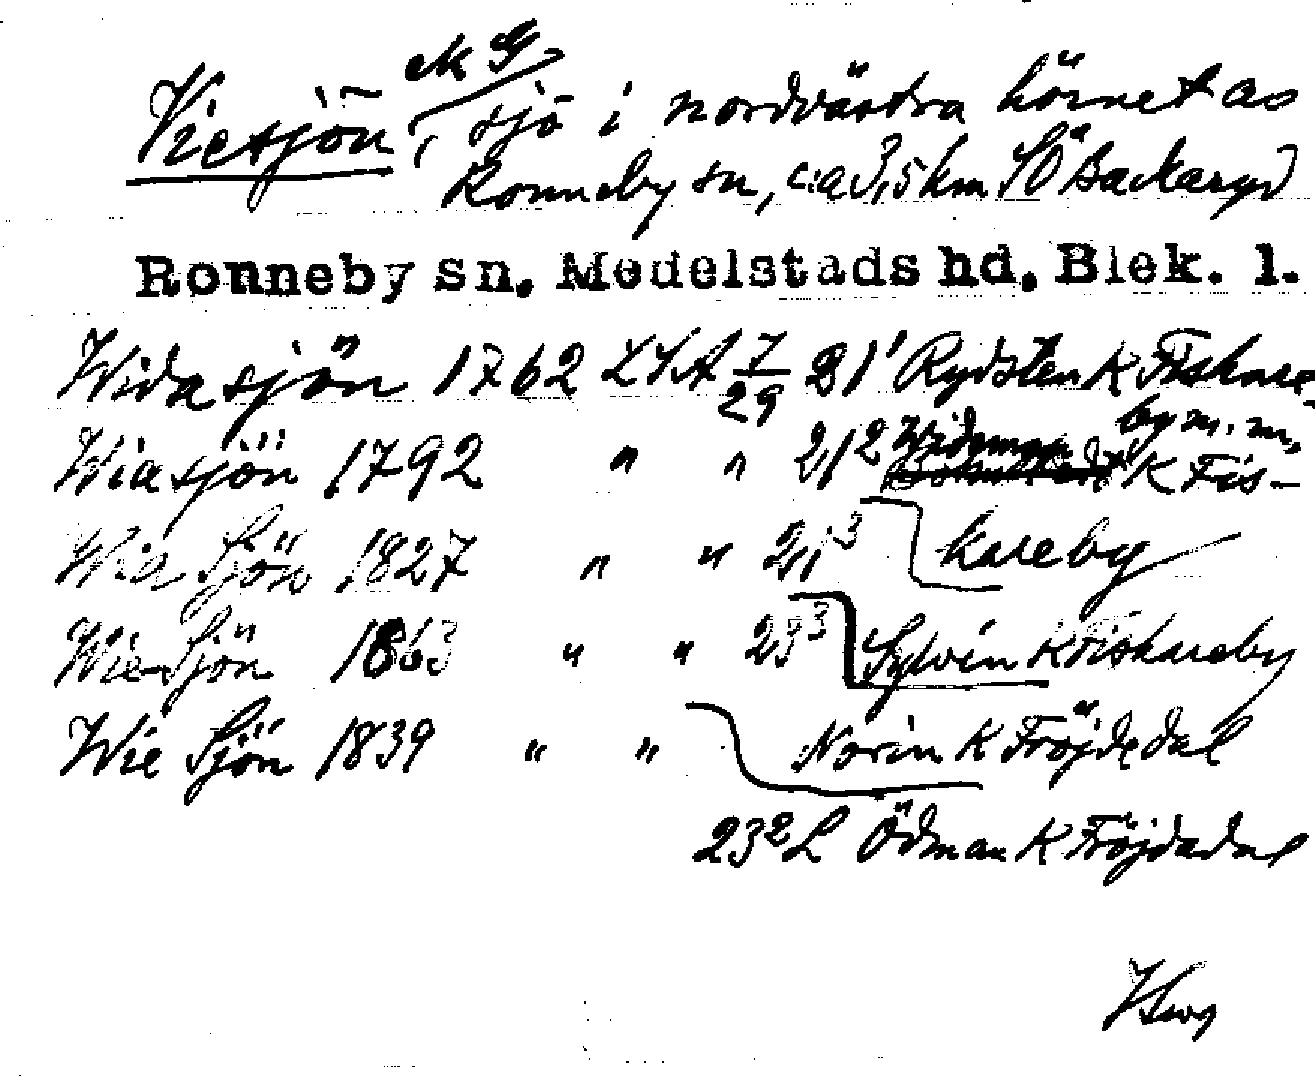 Viesjön, sjö i nordvästra hörnet av
Ronneby sn, c:a 3,5 km SÖ Backaryd
Ronneby sn. Medelstads hd. Blek. l.
Widasjön 1762 LSA 7/29 21¹ Rydsten K Fiskare-
by m. m.
Wiasjön 1792 " " 21² Wideman K Fis-
kareby
Wia Sjön 1827 " " 21³
Wie Sjön 1863 " " 23³ Sylvén K Fiskareby
Wie Sjön 1839 " " Norin K Fröjdedal
23² L Ödman K Fröjdadal